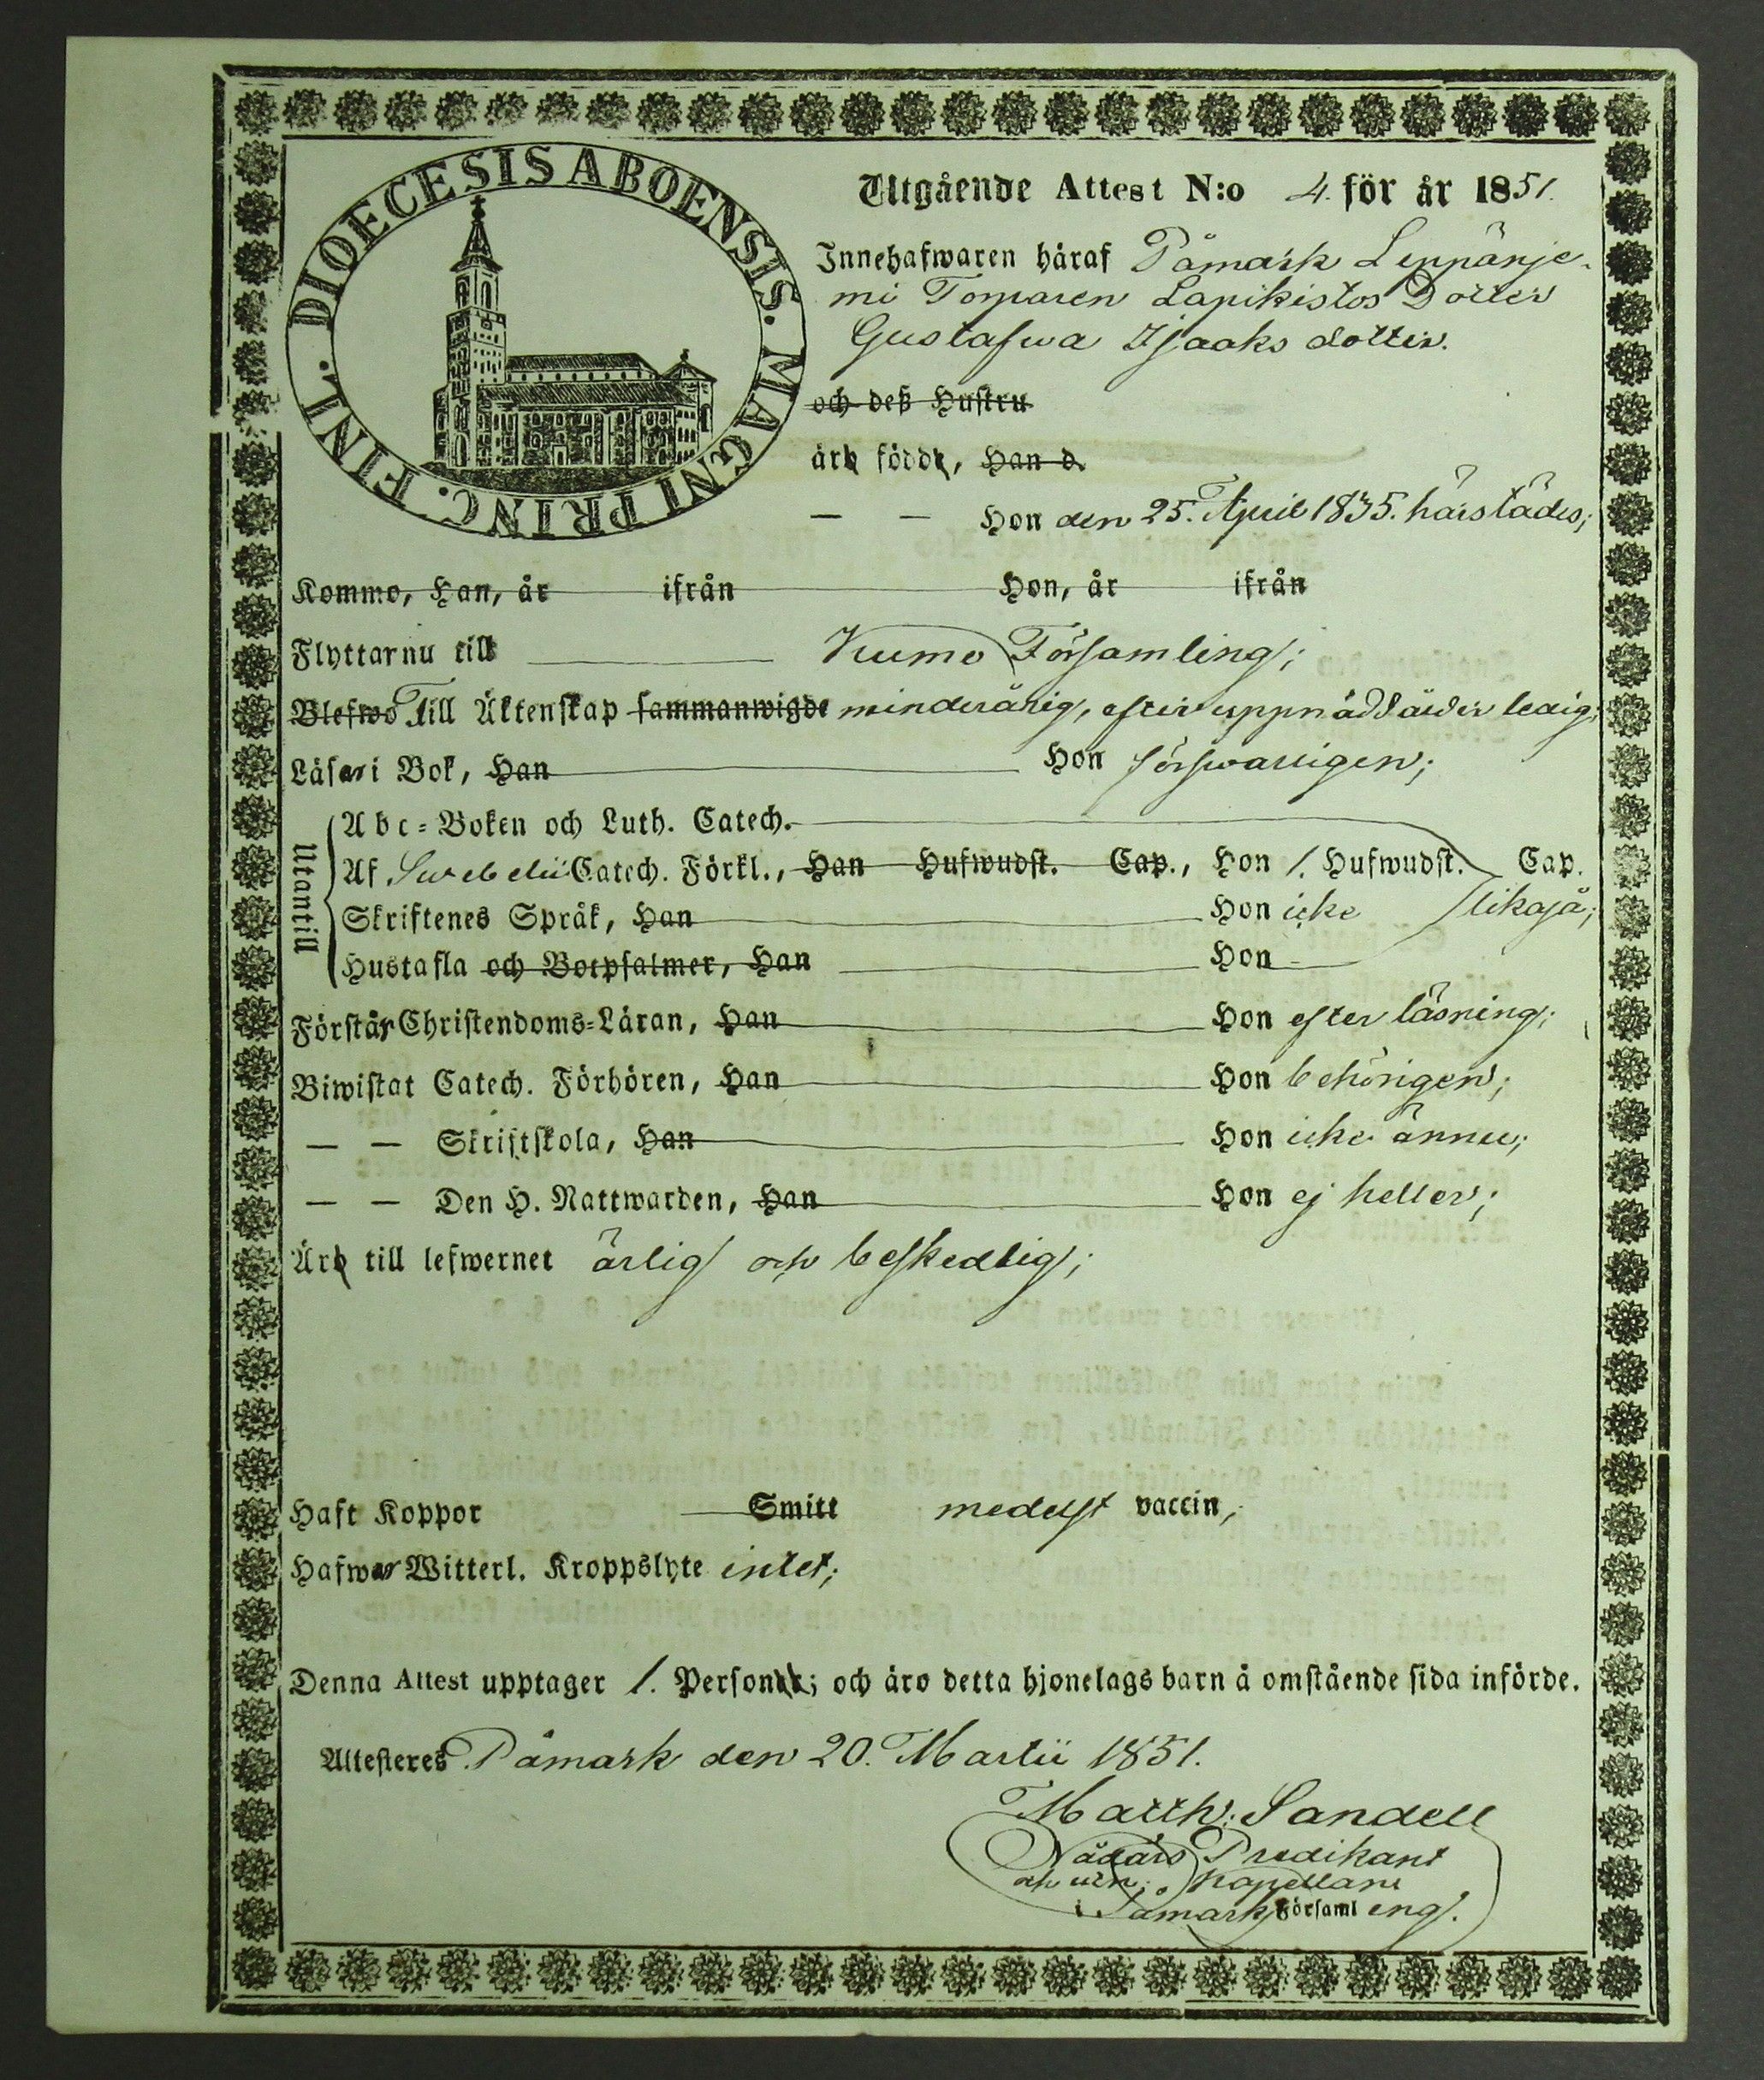 DIOECESIS ABOENSIS. MAGNI PRINC. FINL.
Utgående Attest N:o 4. för år 1851.
Innehafwaren häraf Påmark Leppänje-
mi Torparen Lapikistos Dotter
Gustafwa Isaaks dotter.
och deß Hustru
äro födde, Han d.
— — Hon den 25. April 1835. härstädes;
Kommo, Han, år ifrån Hon, år ifrån
Flyttar nu till Kumo Församling;
Blefwo Till Äktenskap sammanwigde minderårig, efter uppnådd ålder ledig;
Läser i Bok, Han Hon förswarligen;
Utantill
Abc-Boken och Luth. Catech.
Af Swebelii Catech. Förkl., Han Hufwudst. Cap., Hon 1. Hufwudst. Cap.
Skriftenes Språk, Han Hon icke likaså;
Hustafla och Botpsalmer, Han Hon
Förstår Christendoms-Läran, Han Hon efter läsning;
Biwistat Catech. Förhören, Han Hon behörigen;
— — Skriftskola, Han Hon icke ännu;
— — Den H. Nattwarden, Han Hon ej heller;
Äro till lefwernet ärlig och beskedlig;
Haft Koppor Smitt medelst vaccin;
Hafwer Witterl. Kroppslyte intet;
Denna Attest upptager 1. Person; och äro detta hjonelags barn å omstående sida införde.
Attesteres Påmark den 20. Martii 1851.
Matth. Sandell
Nådårs Predikant
Kapellans
i Påmark Församling.